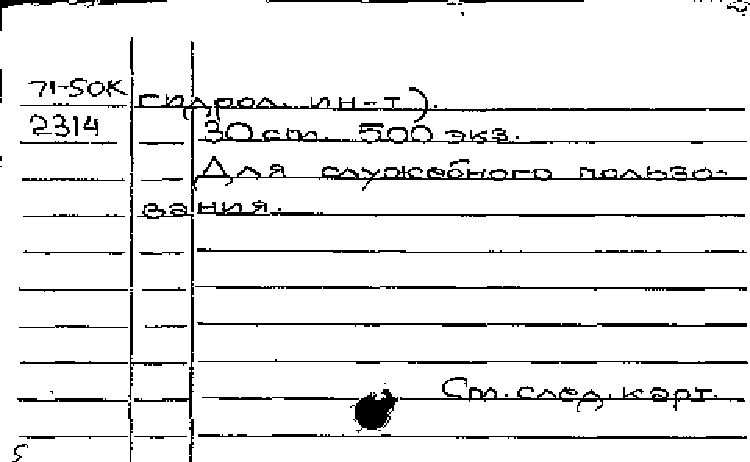 71-50к гидрол. ин-т).
2314 30 ст. 500 экз.
Для служебного пользо-
вания.
См. след. карт.